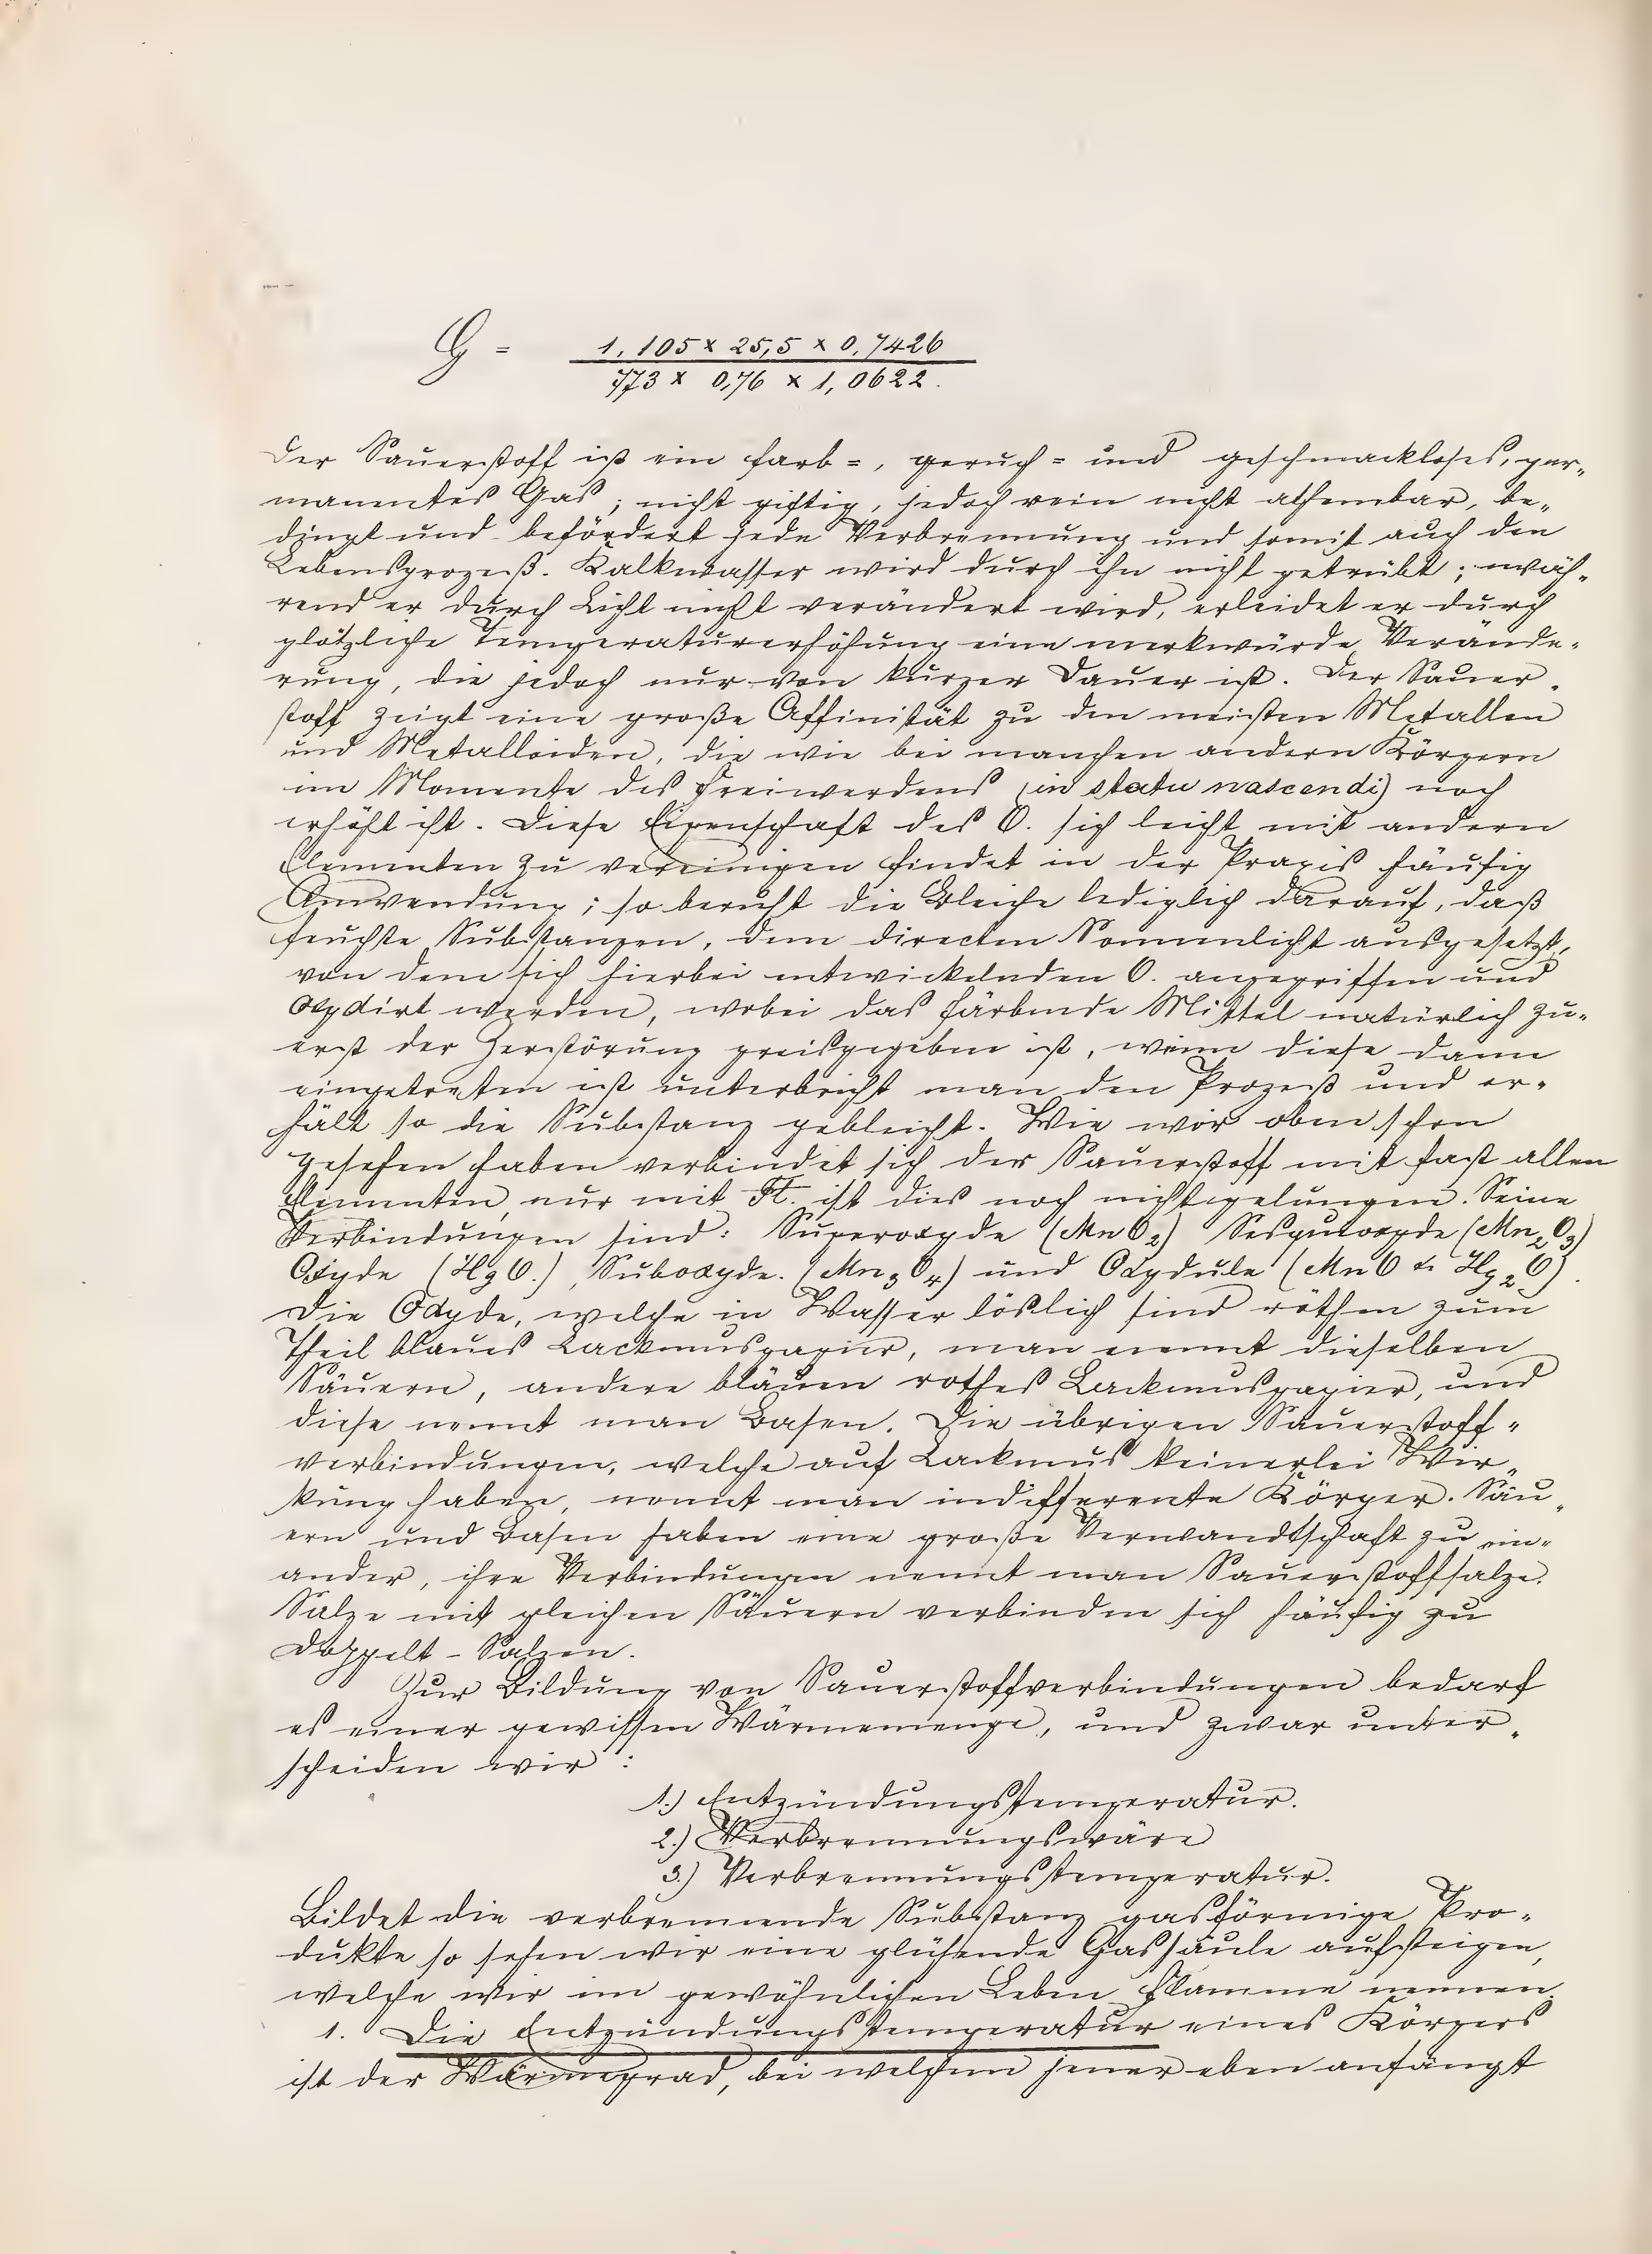 G = 1,105 x 25,5 x 0,7426
773 x 0,76 x 1,0622.
Der Sauerstoff ist ein farb=, geruch= und geschmackloses, per„
manentes Gas; nicht giftig, jedoch rein nicht athembar, be„
dingt und befördert jede Verbrennung und somit auch den
Lebensprozeß. Kalkwasser wird durch ihn nicht getrübt; wäh„
rend er durch Licht nicht verändert wird, erleidet er durch
plötzliche Temperaturerhöhung eine merkwürde Verände„
rung, die jedoch nur von kurzer Dauer ist. Der Sauer„
stoff zeigt eine große Affinität zu den meisten Metallen
und Metalloiden, die wie bei manchen andern Körpern
im Momente des Freiwerdens (in statu nascendi) noch
erhöht ist. Diese Eigenschaft des O. sich leicht mit andern
Elementen zu vereinigen findet in der Praxis häufig
Anwendung; so beruht die Bleiche lediglich darauf, daß
feuchte Substanzen, dem directen Sonnenlicht ausgesetzt,
von dem sich hierbei entwickelnden O. angegriffen und
oxydirt werden, wobei das färbende Mittel natürlich zu„
erst der Zerstörung preisgegeben ist, wenn diese dann
eingetreten ist unterbricht man den Prozeß und er„
hält so die Substanz gebleicht. Wie wir oben schon
gesehen haben verbindet sich der Sauerstoff mit fast allen
Elementen, nur mit Fl. ist dies noch nicht gelungen. Seine
Verbindungen sind: Superoxyde (MnO2) Sesquioxyde (Mn2O3)
Oxyde (HgO.), Suboxyde. (Mn3O4) und Oxydule (MnO & Hg2O).
Die Oxyde, welche in Wasser löslich sind röthen zum
Theil blaues Lackmuspapier, man nennt dieselben
Säuern, andere bläuen rothes Lackmuspapier, und
diese nennt man Basen. Die übrigen Sauerstoff„
verbindungen, welche auf Lackmus keinerlei Wir„
kung haben, nennt man indifferente Körper. Säu„
ern und Basen haben eine große Verwandtschaft zu ein„
ander, ihre Verbindungen nennt man Sauerstoffsalze.
Salze mit gleichen Säuern verbinden sich häufig zu
Doppelt-Salzen.
Zur Bildung von Sauerstoffverbindungen bedarf
es einer gewissen Wärmemenge, und zwar unter„
scheiden wir:
1.) Entzündungstemperatur.
2.) Verbrennungswäre
3.) Verbrennungstemperatur.
Bildet die verbrennende Substanz gasförmige Pro„
dukte so sehen wir eine glühende Gassäule aufsteigen,
welche wir im gewöhnlichen Leben Flamme nennen.
1. Die Entzündungstemperatur eines Körpers
ist der Wärmegrad, bei welchem jener eben anfängt